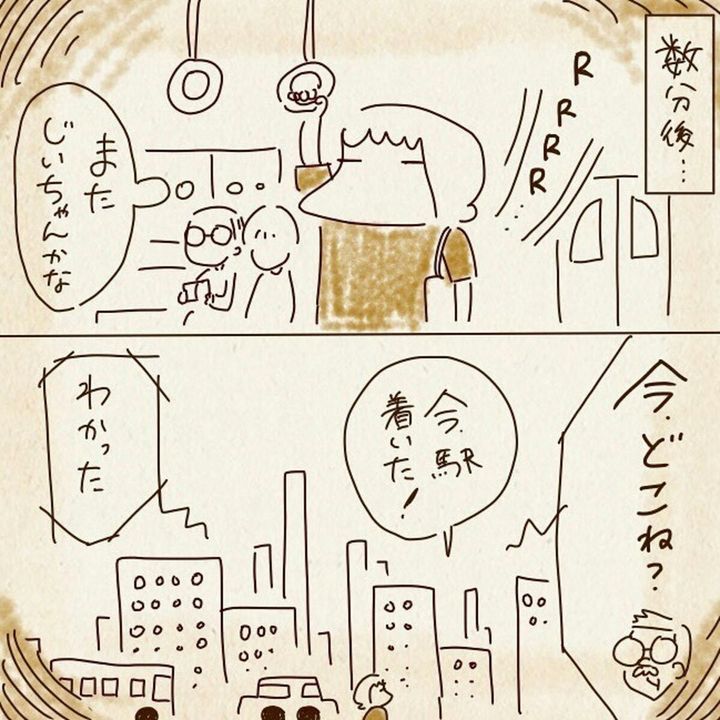 数分後…
RRRR…
また
じいちゃんかな
今、どこね？
今、駅
着いた！
わかった